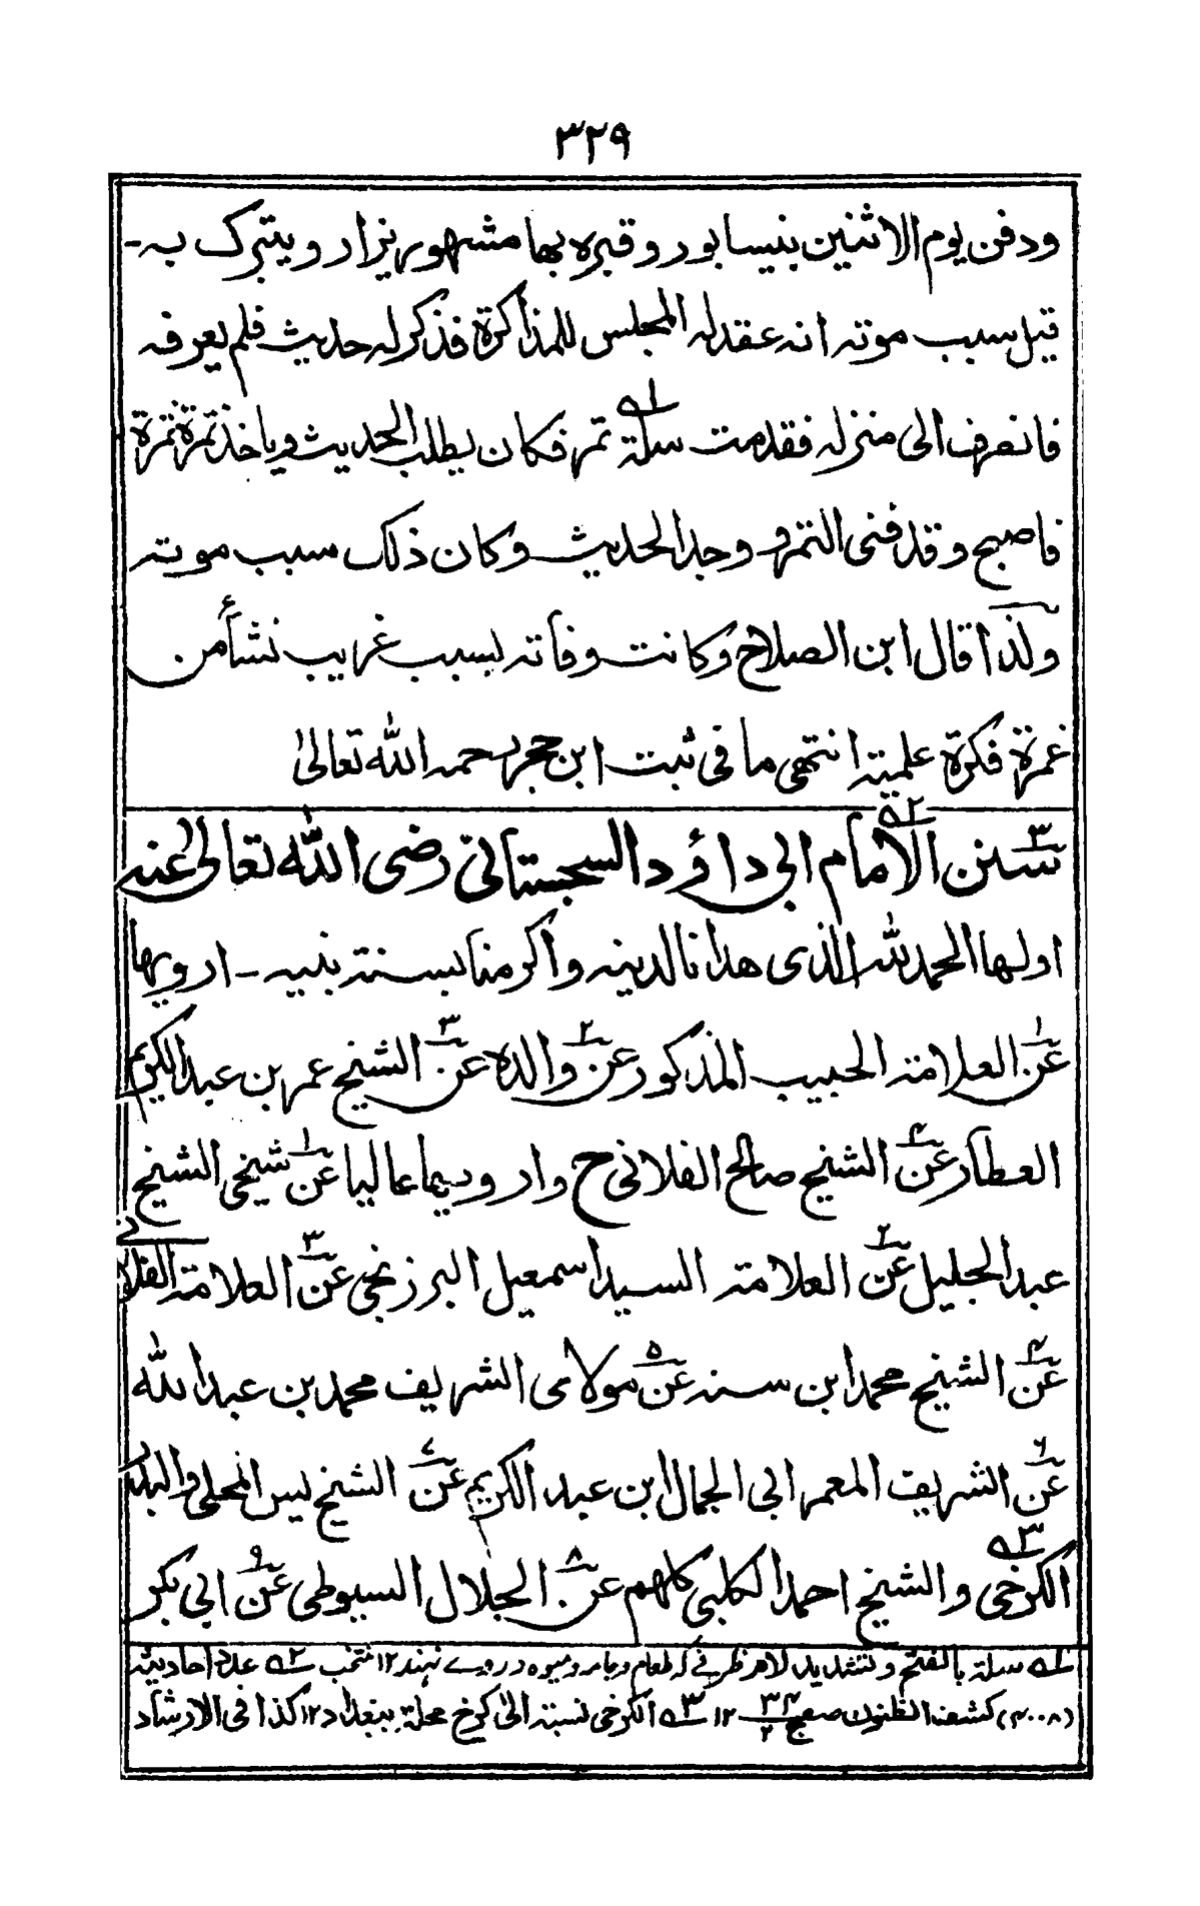 ٣٢٩
ودفن يوم الاثنين بنيسابور وقبره بها مشهور يزار ويتبرك به -
قيل سبب موته انه عقد له المجلس للمذاكرة فذكر له حديث فلم يعرفه
فانصرف الى منزله فقدمت سلة ؎١ تمر فكان يطلب الحديث وياخذ تمرة تمرة
فاصبح وقد فنى التمر و وجد الحديث وكان ذلك سبب موته
ولذا قال ابن الصلاح وكانت وفاته بسبب غريب نشأ من
غمرة فكرة علمية انتهى ما في ثبت ابن حجر رحمه الله تعالىٰ
٣ سنن الامام ؎٢ ابي داؤد السجستاني رضى الله تعالىٰ عنه
اولها الحمد لله الذى هدانا لدينه واكرمنا بسنة نبيه - ارويها
عن ١ العلامة الحبيب المذكور عن ٢ والده عن ٣ الشيخ عمر بن عبد الكريم
العطار عن ٤ الشيخ صالح الفلانى ح وارويها عاليا عن ١ شيخى الشيخ
عبد الجليل عن ٢ العلامة السيد اسمعيل البرزنجى عن ٣ العلامة الفلاني
عن ٤ الشيخ محمد ابن سنه عن ٥ مولاى الشريف محمد بن عبد الله
عن ٦ الشريف المعمر ابي الجمال ابن عبد الكريم عن ٧ الشيخ يس المحلى والبدر
الكرخى ؎٣ والشيخ احمد الكلبى كلهم عن ٨ الجلال السيوطى عن ٩ ابي بكر
؎١ سلة بالفتح وتشديد لام ظرفے كه طعام وجامه وميوه درو نهند ١٢ منتخب ؎٢ عدد احاديثه
(٤٠٠٨) كشف الظنون صفحه ٣٤/٢ ١٢ ؎٣ الكرخى نسبة الىٰ كرخ محلة ببغداد ١٢ كذا فى الارشاد